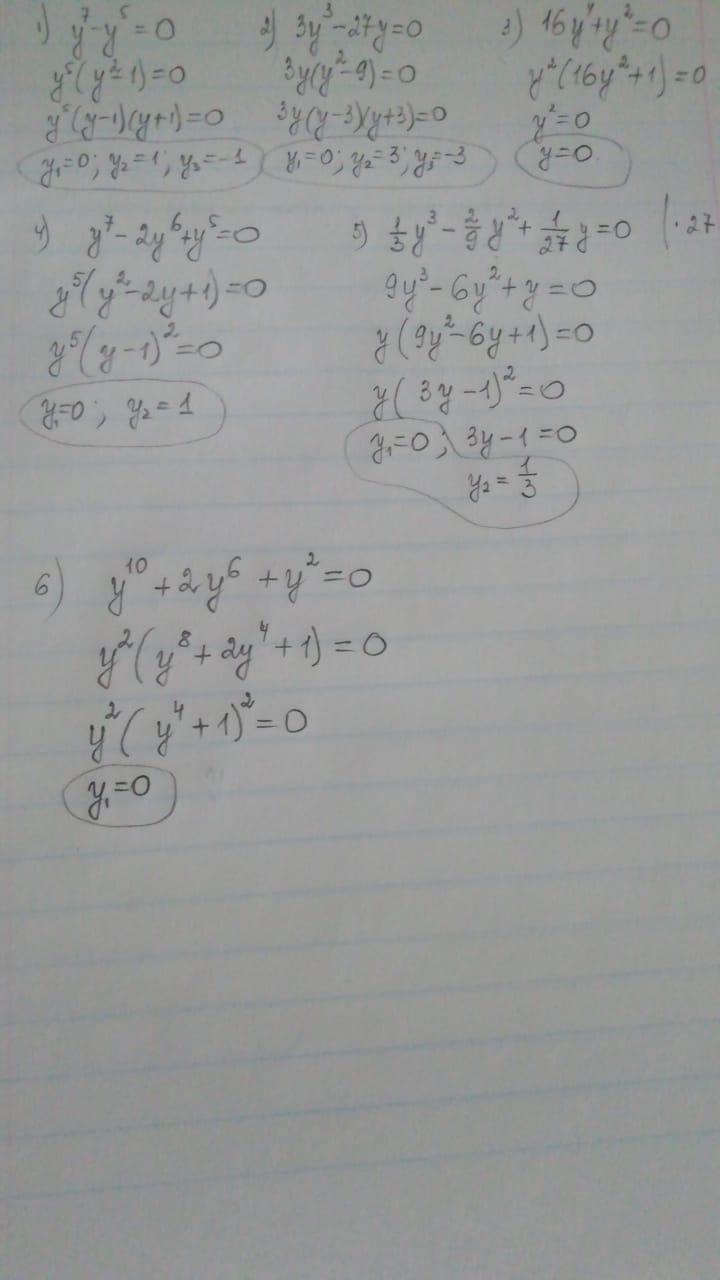 1) y⁷-y⁵=0
y⁵(y²-1)=0
y⁵(y-1)(y+1)=0
y₁=0; y₂=1; y₃=-1
2) 3y³-27y=0
3y(y²-9)=0
3y(y-3)(y+3)=0
y₁=0; y₂=3; y₃=-3
3) 16y⁴+y²=0
y²(16y²+1)=0
y²=0
y=0
4) y⁷-2y⁶+y⁵=0
y⁵(y²-2y+1)=0
y⁵(y-1)²=0
y₁=0; y₂=1
5) 1/3 y³ - 2/9 y² + 1/27 y=0 |·27
9y³-6y²+y=0
y(9y²-6y+1)=0
y(3y-1)²=0
y₁=0; 3y-1=0
y₂=1/3
6) y¹⁰+2y⁶+y²=0
y²(y⁸+2y⁴+1)=0
y²(y⁴+1)²=0
y₁=0